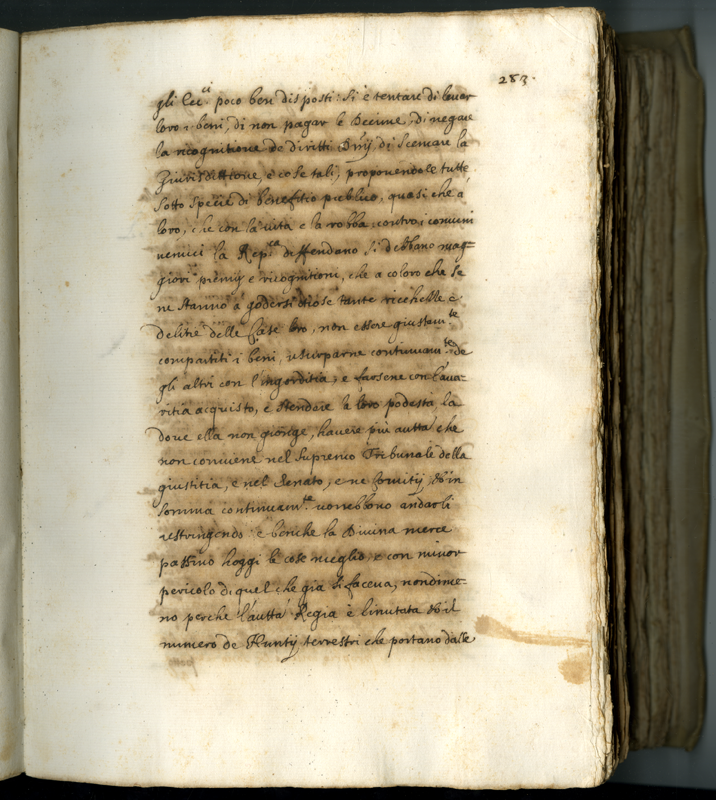 283.
gli Ecc.ci poco ben disposti: Si è tentare di levar
loro i beni, di non pagar le Decime, di negare
la ricognitione de diritti di scemare la
Giurisdittione, e cose tali; proponendole tutte
sotto specie di benefitio publico, quasi che à
loro, che con la vita e la robba contro i comuni
nemici la Rep.ca diffendano si debbano mag=
giori premij e ricognitioni, che a coloro che se
ne stanno à godersi otiose tante ricchezze e
delitie delle Case loro, non essere giustam.te
compartiti i beni, usurparne continuam.te de
gli altri con l'ingorditia, e farsene con l'ava=
ritia acquisto, e stendere la loro podestà, la
doue ella non gionge, hauere più autta che
non conuiene nel supremo Tribunale della
giustitia, e nel Senato, e ne Comitij, et in
somma continuam.te vorrebbono andarli
restringendo: e benche la Diuina mercè
passino hoggi le cose meglio, e con minor
pericolo di quel che già si faceua, nondime=
no perche l'autta Regia è limitata et il
numero de Nuntij terrestri che portano dalle